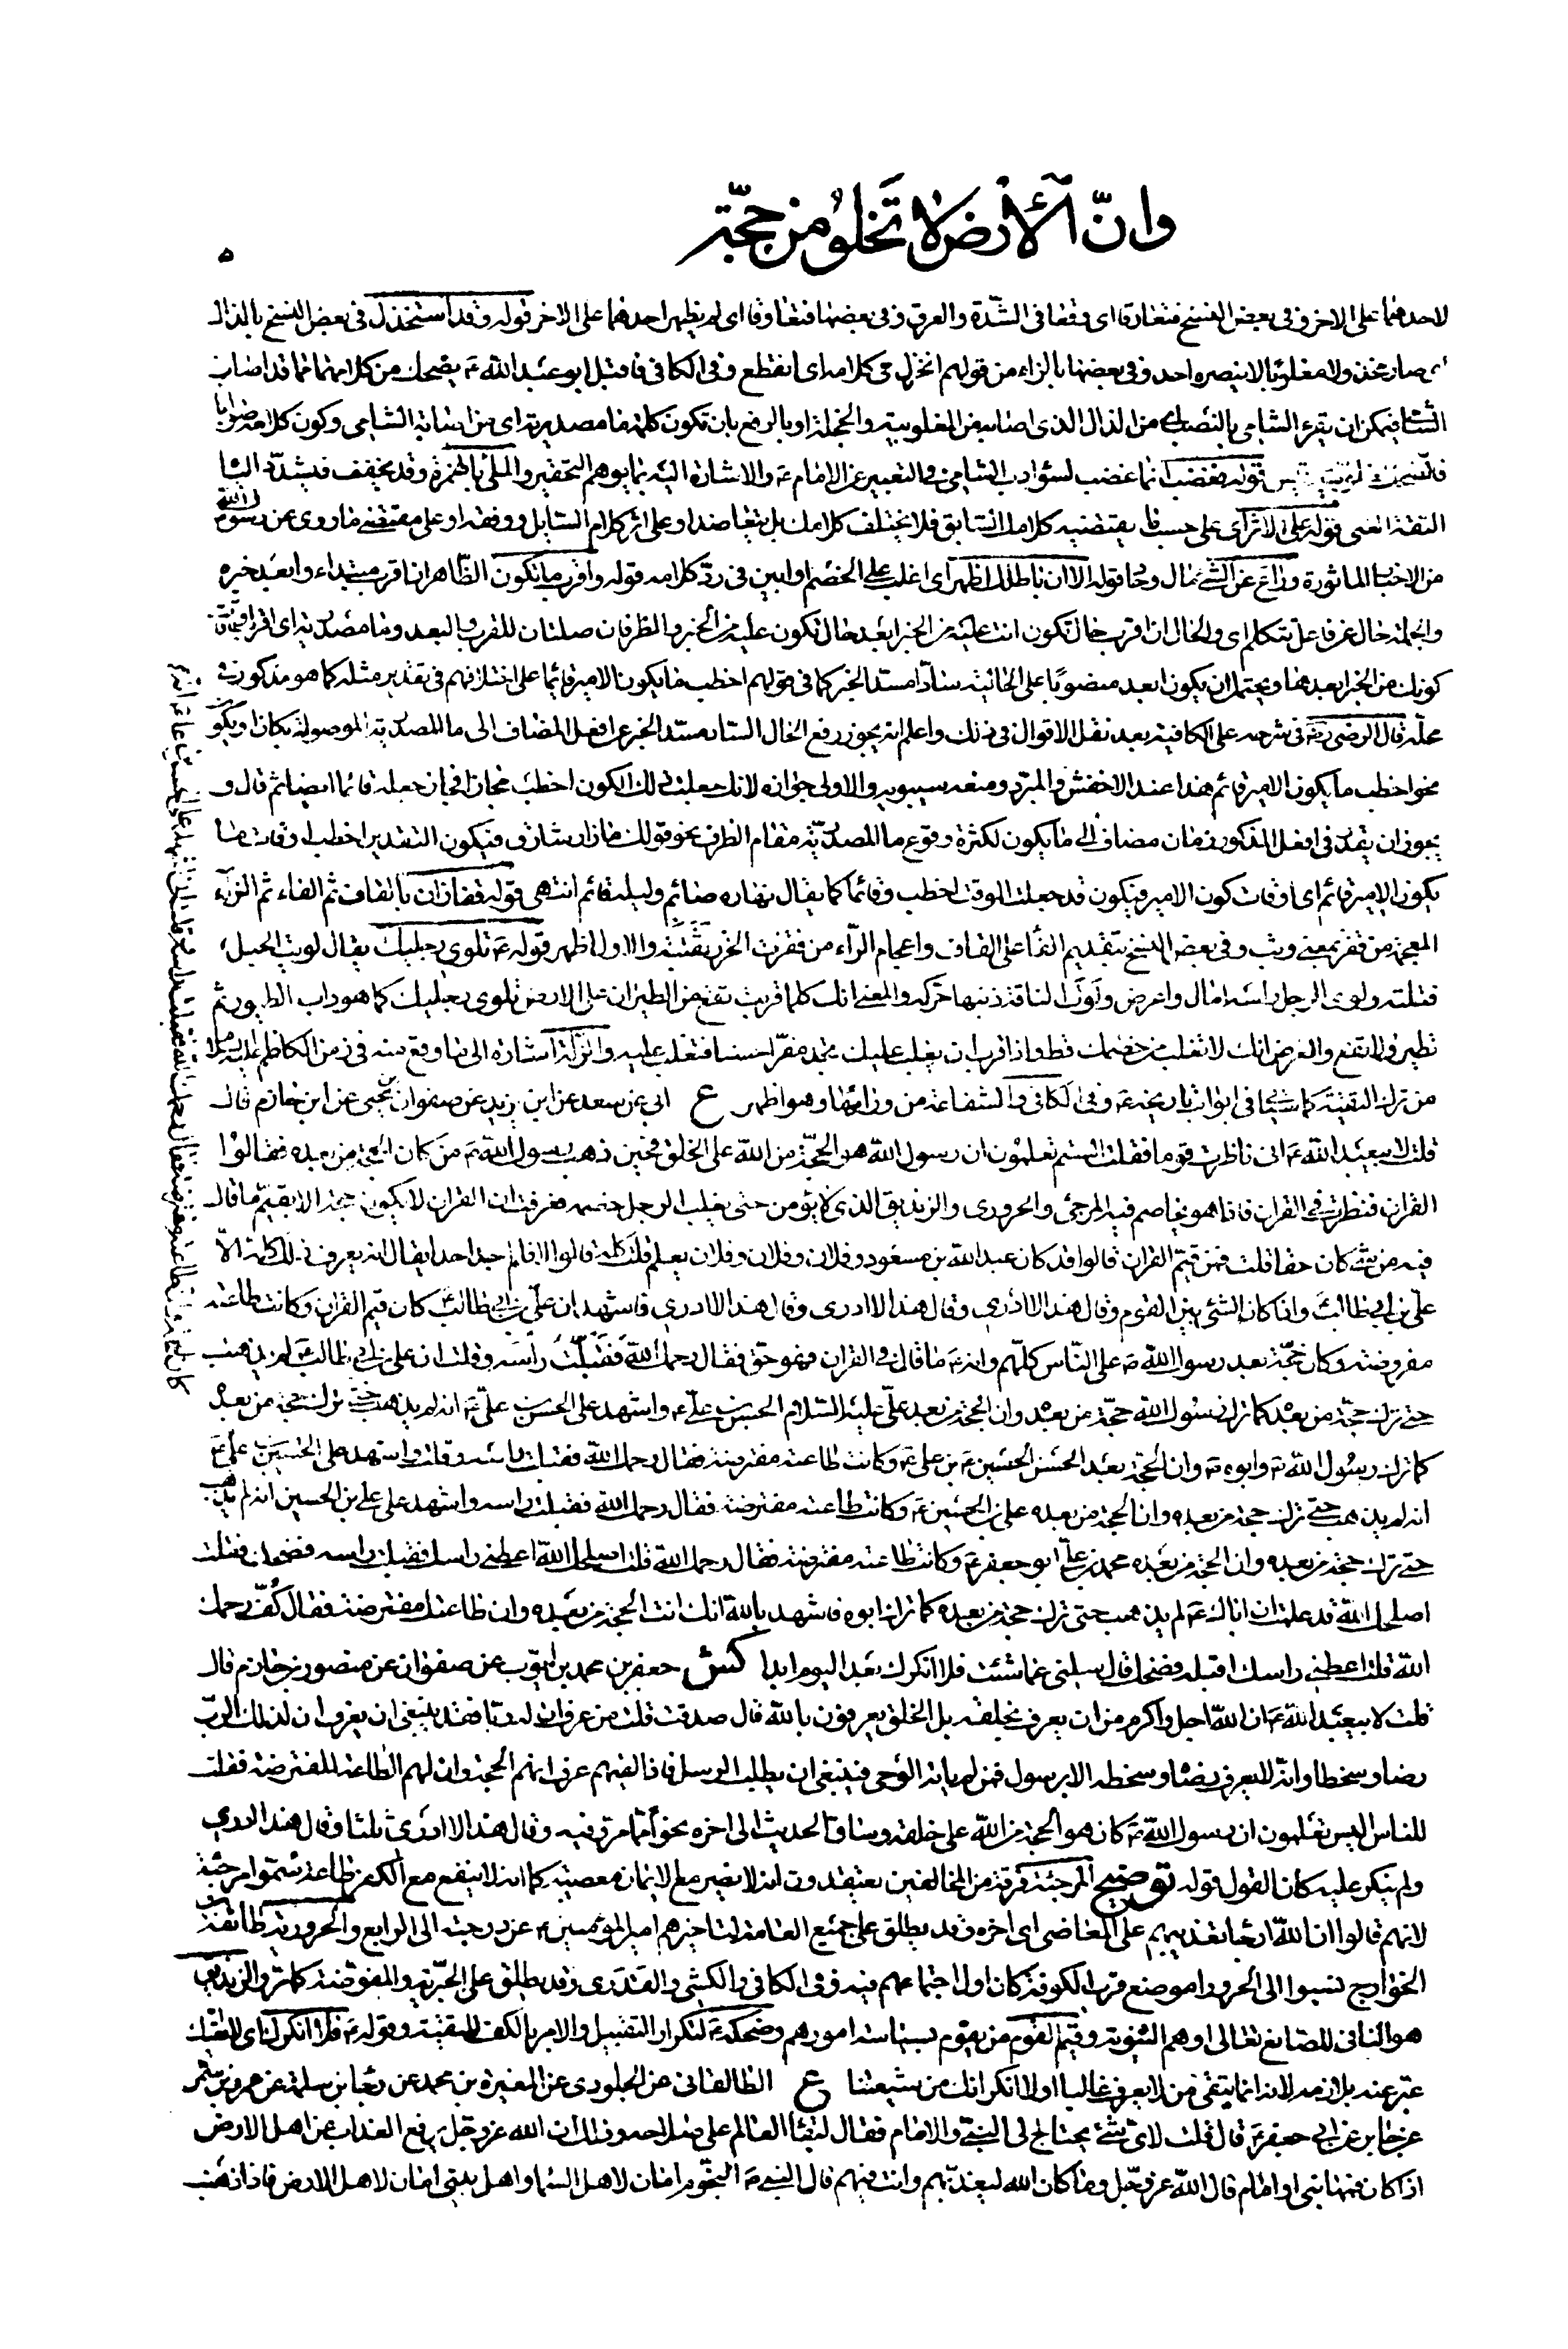 وانّ الأرض لا تخلو من حجّة
٥
لاحدهما على الاخر وفى بعض النسخ فتعارقا اى وقعا فى الشدّة والعرق وفى بعضها فتعاوقا اى لم يظهر احدهما على الاخر قوله وقد استخذل فى بعض النسخ بالذال
اى صار مخذولا مغلوبا لا ينصره احد وفى بعضها بالزاء من قولهم انخزل فى كلامه اى انقطع وفى الكافى فاقبل ابو عبد الله ع يضحك من كلامهما مما قد اصاب
الشامى فيمكن ان يقرء الشامى بالنصب اى من الذل الذى اصابه من المغلوبية والخجلة او بالرفع بان تكون كلمة ما مصدرية اى من اصابة الشامى وكون كلامه صوابا
قوله فغضب انما غضب لسوء ادب الشامى فى التعبير عن الامام ع والاشارة اليه بما يوهم التحقير والملئ بالهمزة وقد يخفف فيشدّد اليا
الثقة الغنى قوله على الاثر اى على حسب ما يقتضيه كلامك السابق فلا يختلف كلامك بل يتعاضد او على اثر كلام السايل ووفقه او على مقتضى ما روى عن رسول الله
من الاخبار الماثورة وراغ عن الشئ مال وحاد قوله الا ان باطلك اظهر اى اغلب على الخصم او ابين فى ردّ كلامه قوله واقرب ما تكون الظاهر ان اقرب مبتداء وابعد خبره
والجملة حال عن فاعل تتكلم اى والحال ان اقرب حال تكون انت عليه من الخبر ابعد حال تكون عليه من الخبر والظرفان صلتان للقرب والبعد وما مصدرية اى اقرب اوقات
كونك من الخبر ابعدها ويحتمل ان يكون ابعد منصوبا على الحالية سادّا مسدّ الخبر كما فى قولهم اخطب ما يكون الامير قائما على اختلافهم فى تقدير مثله كما هو مذكور فى
محله قال الرضى رض فى شرحه على الكافية بعد نقل الاقوال فى ذلك واعلم انه يجوز رفع الحال الساد مسدّ الخبر عن افعل المضاف الى ما المصدرية الموصولة بكان او يكون
نحو اخطب ما يكون الامير قائم هذا عند الاخفش والمبرّد ومنعه سيبويه والاولى جوازه لانك جعلت ذلك الكون اخطب مجازا فجاز جعله قائما ايضا ثم قال و
يجوز ان يقدّر فى افعل المذكور زمان مضاف الى ما يكون لكثرة وقوع ما المصدريّة مقام الظرف نحو قولك ما ذر شارق فيكون التقدير اخطب اوقات ما
يكون الامير قائم اى اوقات كون الامير فيكون قد جعلت الوقت اخطب وقائما كما يقال نهاره صائم وليله قائم انتهى قوله قفازان بالقاف ثم الفاء ثم الزاء
المعجمة من قفز بمعنى وثب وفى بعض النسخ بتقديم الفاء على القاف واعجام الراء من فقزت الخرز ثقبته والاول اظهر قوله ع تلوى رجليك يقال لويت الحبل
فتلته ولوى الرجل راسه امال واعرض ولوت الناقة ذنبها حركته والمعنى انك كلما قربت تقع من الطيران على الارض تلوى رجليك كما هو داب الطيور ثم
تطير ولا تقع والغرض انك لا تغلب من خصمك قط واذا قرب ان يغلب عليك تجد مفرّا حسنا فتغلب عليه والزلة اشارة الى ما وقع منه فى زمن الكاظم عليه السلام
من ترك التقية كما سياتى فى ابواب تاريخه ع وفى الكافى والشفاعة من ورائها وهو اظهر ع ابى عن سعد عن ابن يزيد عن صفوان بن يحيى عن ابن حازم قال
قلت لابيعبد الله ع انى ناظرت قوما فقلت الستم تعلمون ان رسول الله هو الحجّة من الله على الخلق فحين ذهب رسول الله ص من كان الحجة من بعده فقالوا
القران فنظرت فى القران فاذا هو يخاصم فيه المرجئ والحرورى والزنديق الذى لا يؤمن حتى يغلب الرجل خصمه فعرفت ان القران لا يكون حجة الا بقيّم ما قال
فيه من شئ كان حقا قلت فمن قيّم القران قالوا قد كان عبد الله بن مسعود وفلان وفلان وفلان يعلم قلت كله قالوا لا فلم اجد احدا يقال انه يعرف ذلك كله الّا
علىّ بن ابى طالب واذا كان الشئ بين القوم وقال هذا لا ادرى وقال هذا لا ادرى وقال هذا لا ادرى فاشهد ان علىّ بن ابى طالب كان قيم القران وكانت طاعته
مفروضة وكان حجّة بعد رسول الله ص على الناس كلّهم وانه ع ما قال فى القران فهو حق فقال رحمك الله فقبّلت راسه وقلت ان على بن ابى طالب ع لم يذهب
حتى ترك حجّة من بعده كما ترك رسول الله حجّة من بعده وان الحجة من بعد علىّ عليه السلام الحسن بن علىّ ع واشهد على الحسن بن علىّ ع انه لم يذهب حتى ترك حجة من بعده
كما ترك رسول الله ص وابوه ع وان الحجّة بعد الحسن الحسين بن على ع وكانت طاعته مفترضة فقال رحمك الله فقبلت راسه وقلت واشهد على الحسين بن على ع
انه لم يذهب حتى ترك حجة من بعده وان الحجة من بعده على بن الحسين ع وكانت طاعته مفترضة فقال رحمك الله فقبلت راسه واشهد على على بن الحسين انه لم يذهب
حتى ترك حجة من بعده وان الحجة من بعده محمد بن علىّ ابو جعفر ع وكانت طاعته مفترضة فقال رحمك الله قلت اصلحك الله اعطنى راسك فقبلت راسه فضحك فقلت
اصلحك الله قد علمت ان اباك ع لم يذهب حتى ترك حجة من بعده كما ترك ابوه فاشهد بالله انك انت الحجة من بعده وان طاعتك مفترضة فقال كفّ رحمك
الله قلت اعطنى راسك اقبله فضحك قال سلنى عما شئت فلا انكرك بعد اليوم ابدا كش جعفر بن محمد بن ايوب عن صفوان عن منصور بن حازم قال
قلت لابيعبد الله ع ان الله اجل واكرم من ان يعرف بخلقه بل الخلق يعرفون بالله قال صدقت قلت من عرف ان له ربا فقد ينبغى ان يعرف ان لذلك الرب
رضا وسخطا وانه لا يعرف رضاه وسخطه الا برسول فمن لم ياته الوحى فينبغى ان يطلب الرسل فاذا لقيهم عرف انهم الحجة وان لهم الطاعة المفترضة فقلت
للناس اليس تعلمون ان رسول الله ص كان هو الحجة من الله على خلقه وساق الحديث الى اخره نحوا مما مر فيه وقال هذا لا ادرى ثلثا وقال هذا ادرى
ولم ينكر عليه كان القول قوله توضيح المرجئة فرقة من المخالفين يعتقدون انه لا يضر مع الايمان معصية كما انه لا ينفع مع الكفر طاعة سمّوا مرجئة
لانهم قالوا ان الله ارجا تعذيبهم على المعاصى اى اخره وقد يطلق على جميع العامة لتاخيرهم امير المؤمنين ع عن درجته الى الرابع والحرورية طائفة من
الخوارج نسبوا الى الحرورا موضع قرب الكوفة كان اول اجتماعهم فيه وفى الكافى والكشى والقدرى وقد يطلق على الجبرية والمفوضة كما مر والزنديق
هو النافى للصانع تعالى او هم الثنوية وقيّم القوم من يقوم بسياسة امورهم وضحكه ع لتكرار التقبيل والامر بالكف للتقية وقوله ع فلا انكرك اى لا اتقيك
عبّر عنه بلازمه لانه انما يتقى من لا يعرف غالبا او لا انكر انك من شيعتنا ع الطالقانى عن الجلودى عن المغيرة بن محمد عن رجا بن سلمة عن عمرو بن شمر
عن جابر عن ابى جعفر ع قال قلت لاى شئ يحتاج الى النبى والامام فقال لبقاء العالم على صلاحه وذلك ان الله عز وجل يرفع العذاب عن اهل الارض
اذا كان فيها نبى او امام قال الله عز وجل وما كان الله ليعذبهم وانت فيهم قال النبى ص النجوم امان لاهل السماء واهل بيتى امان لاهل الارض فاذا ذهب